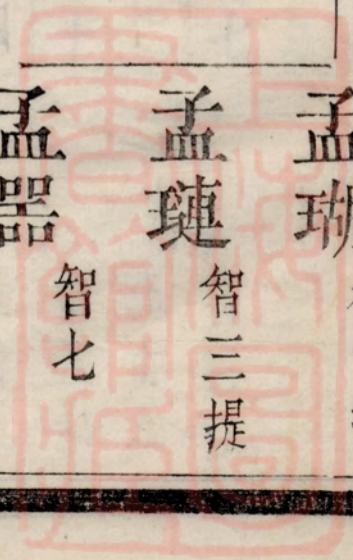 孟瑚
孟璉
智三提
孟器
智七